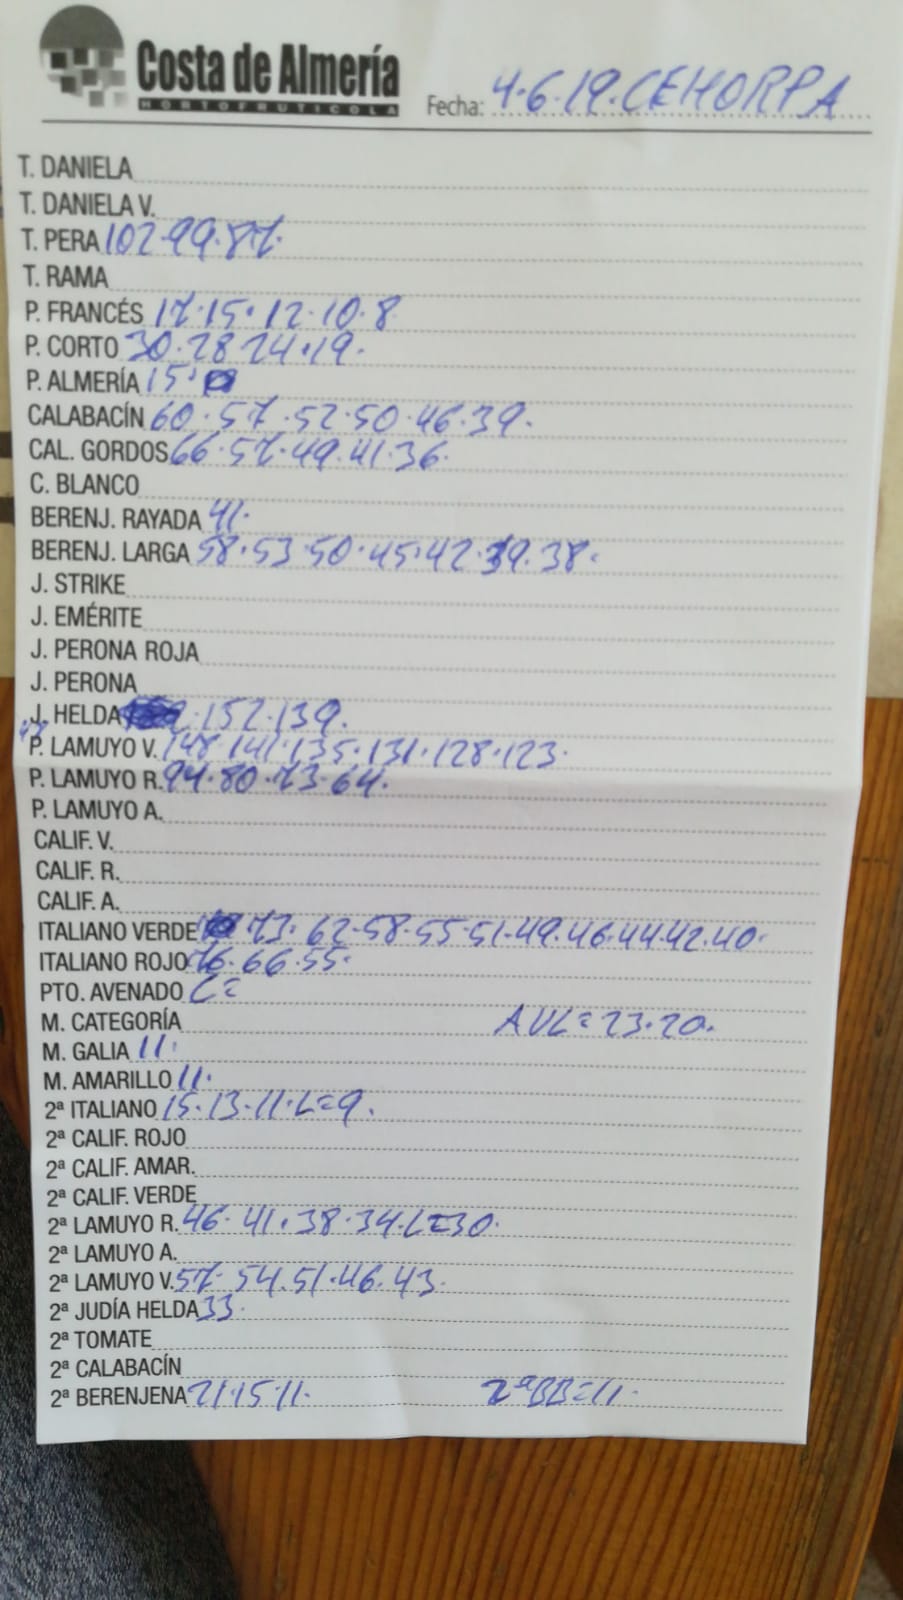 Costa de Almería
HORTOFRUTICOLA
Fecha: 4.6.19.CEHORPA
T. DANIELA
T. DANIELA V.
T. PERA 102.99.87.
T. RAMA
P. FRANCÉS 17.15.12.10.8
P. CORTO 30.28.24.19.
P. ALMERÍA 15.
CALABACÍN 60.57.52.50.46.39.
CAL. GORDOS 66.57.49.41.36.
C. BLANCO
BERENJ. RAYADA 41.
BERENJ. LARGA 58.53.50.45.42.39.38.
J. STRIKE
J. EMÉRITE
J. PERONA ROJA
J. PERONA
J. HELDA 152.139.
P. LAMUYO V. 148.141.135.131.128.123.
P. LAMUYO R. 94.80.73.64.
P. LAMUYO A.
CALIF. V.
CALIF. R.
CALIF. A.
ITALIANO VERDE 73.62.58.55.51.49.46.44.42.40.
ITALIANO ROJO 76.66.55.
PTO. AVENADO C=
M. CATEGORÍA AVL=23.20.
M. GALIA 11.
M. AMARILLO 11.
2ª ITALIANO 15.13.11.L=9.
2ª CALIF. ROJO
2ª CALIF. AMAR.
2ª CALIF. VERDE
2ª LAMUYO R. 46.41.38.34.L=30.
2ª LAMUYO A.
2ª LAMUYO V. 57.54.51.46.43.
2ª JUDÍA HELDA 33.
2ª TOMATE
2ª CALABACÍN
2ª BERENJENA 21.15.11. 2ªBB=11.